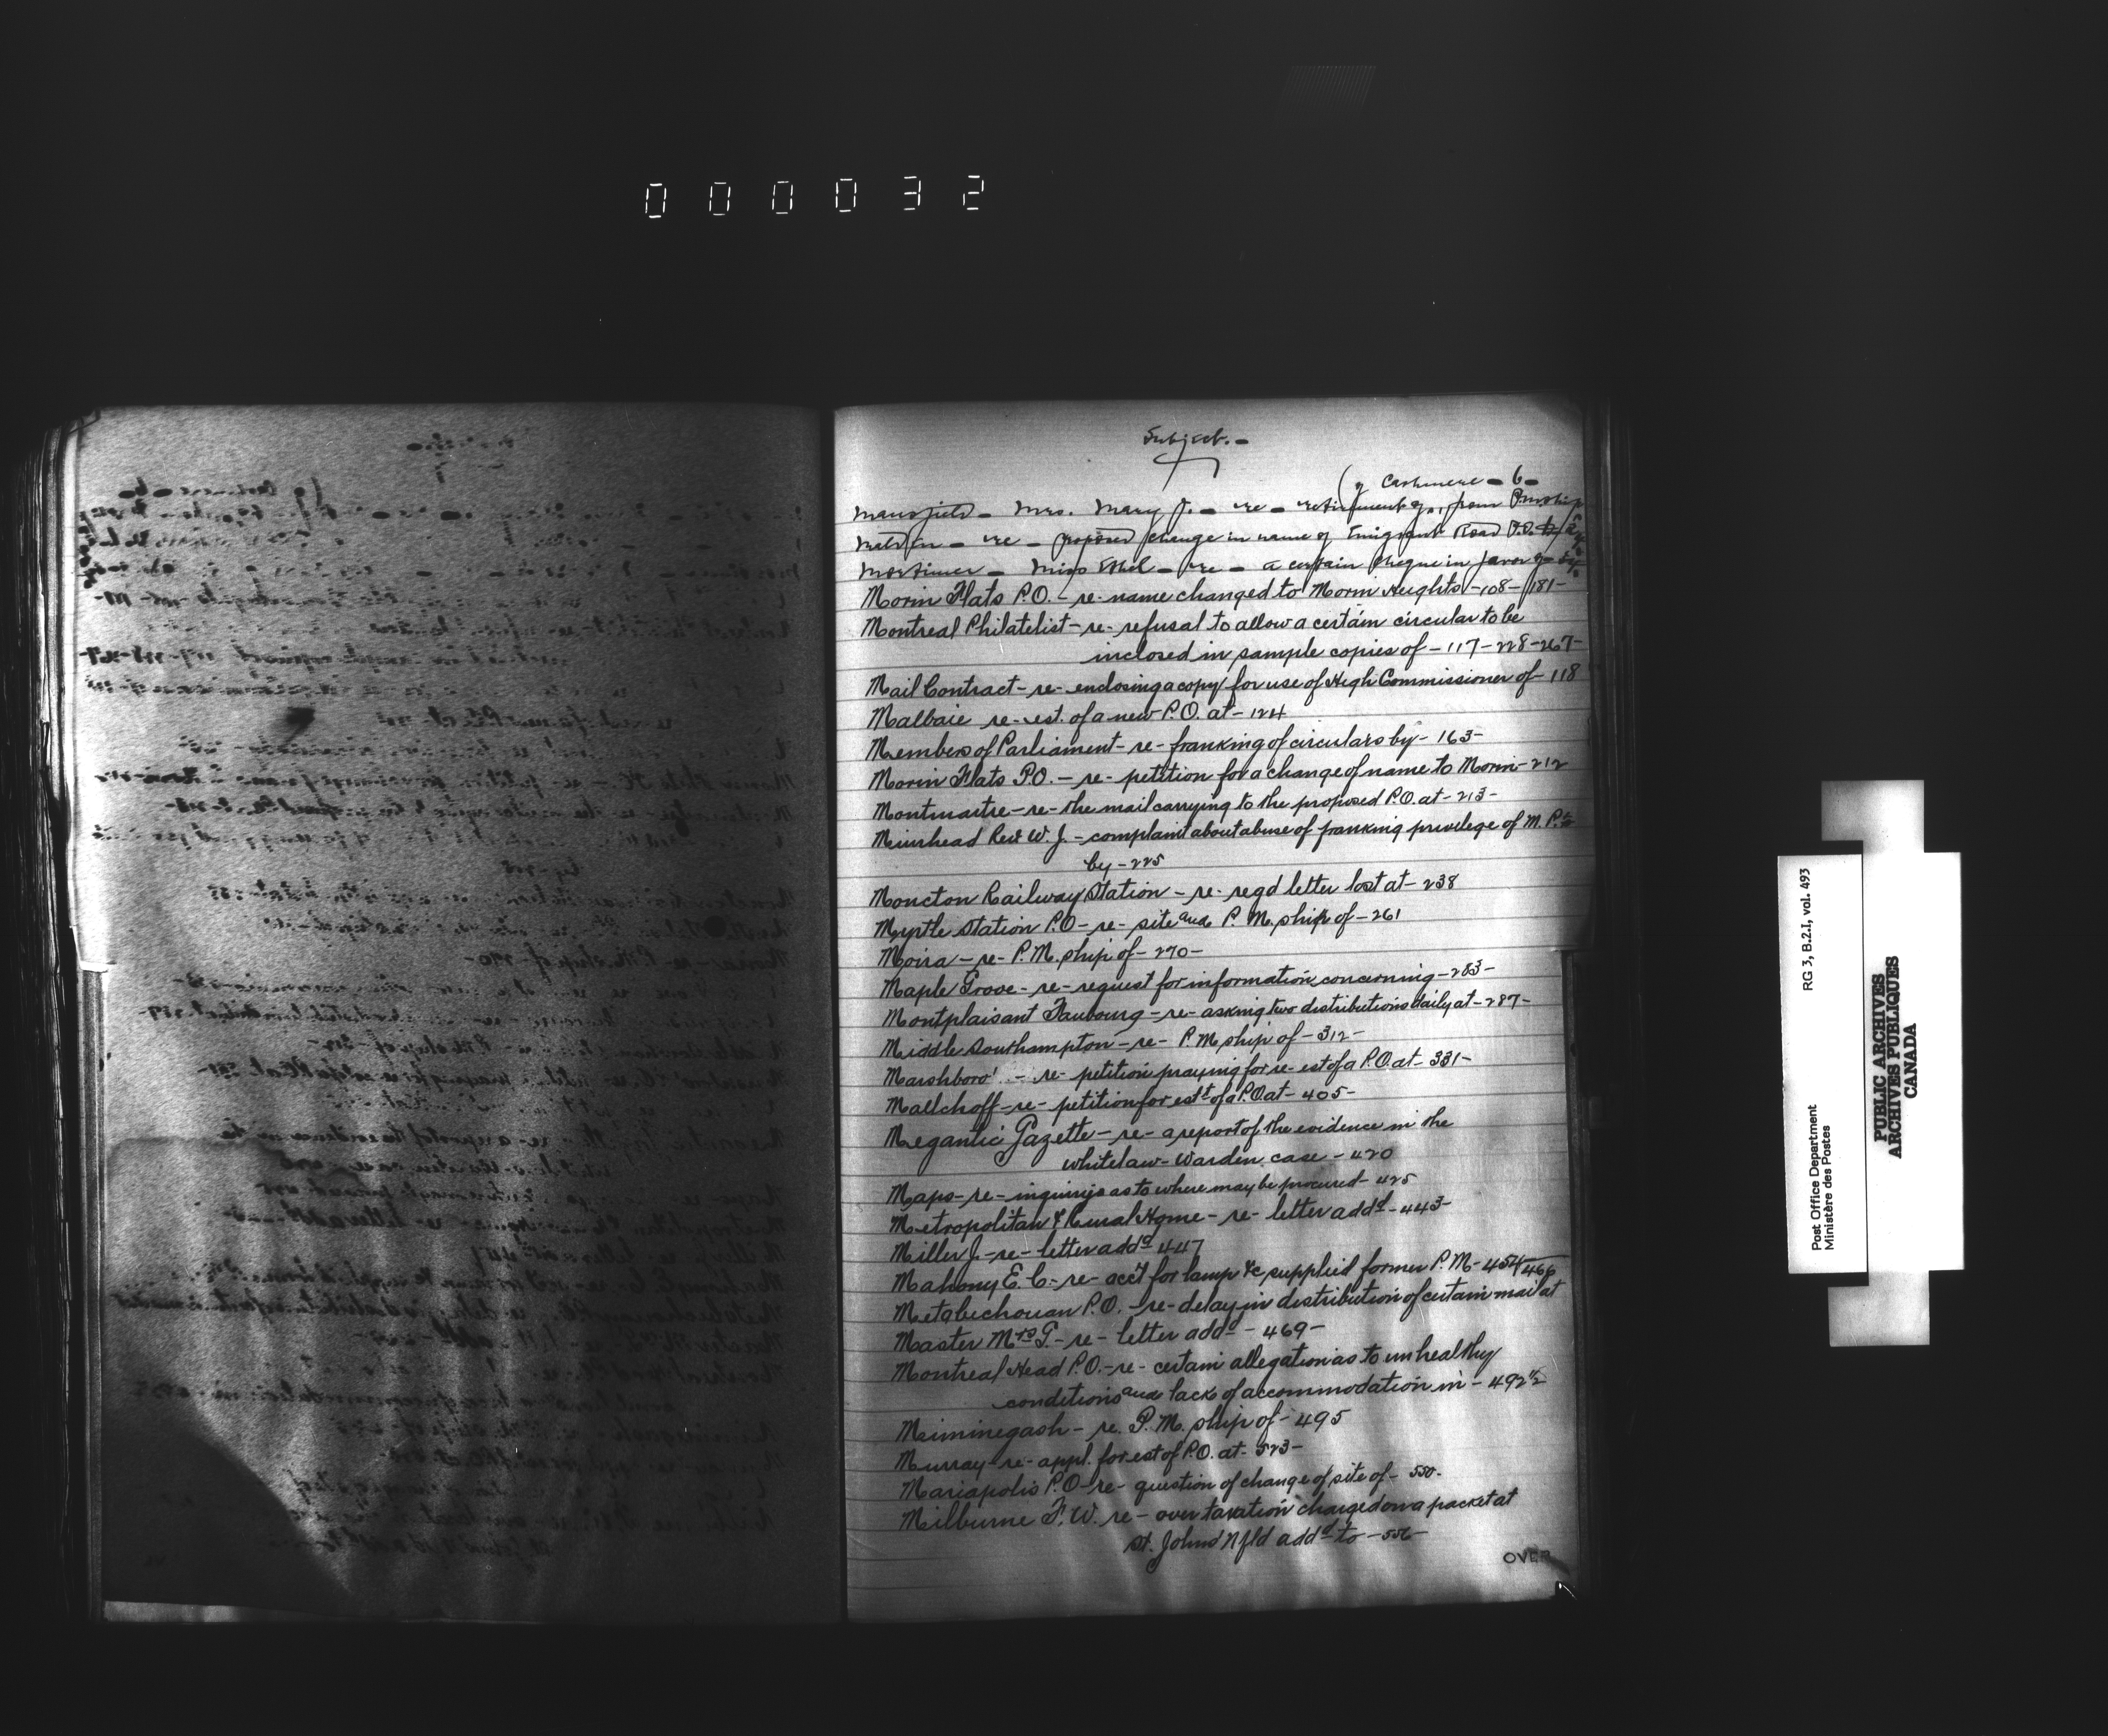 000032
Subject.-
(of Cashmere - 6 -
Mansfield - Mrs. Mary J. - re - retirement of, from P.M.ship
Melvin - re - proposed change in name of Emigrant Road P.O. to
Mortimer - Miss Ethel - re - a certain cheque in favor of
Morin Flats P.O. - re - name changed to Morin Heights - 108 - 181 -
Montreal Philatelist - re - refusal to allow a certain circular to be
inclosed in sample copies of - 117 - 228 - 267 -
Mail Contract - re - enclosing a copy for use of High Commissioner of - 118
Malbaie re - est. of a new P.O. at - 124
Members of Parliament - re - franking of circulars by - 163 -
Morin Flats P.O. - re - petition for a change of name to Morin - 212
Montmartre - re - the mail carrying to the proposed P.O. at - 213 -
Muirhead Rev W. J. - complaint about abuse of franking privilege of M.P.s
by - 225
Moncton Railway Station - re - regd letter lost at - 238
Myrtle Station P.O - re - site and P.M.ship of - 261
Moira - re - P.M.ship of - 270 -
Maple Grove - re - request for information concerning - 283 -
Montplaisant Faubourg - re - asking two distributions daily at - 287 -
Middle Southampton - re - P.M.ship of - 312 -
Marshboro' - re - petition praying for re-est of a P.O. at - 331 -
Mallchoff - re - petition for estt of a P.O at - 405 -
Megantic Gazette - re - a report of the evidence in the
Whitelaw - Warden case - 420
Maps - re - inquiries as to where may be procured - 425
Metropolitan & Rural Home - re - letter addd - 443 -
Miller J. - re - letter addd 447
Mahony E. C. - re - acct for lamp &c supplied former P.M - 454 466
Metabechouan P.O. - re - delay in distribution of certain mail at
Master Mrs G. - re - letter addd - 469 -
Montreal Head P.O. - re - certain allegation as to unhealthy
conditions and lack of accommodation in - 492 1/2
Meiminegash - re. P.M.ship of - 495
Murray - re - appl. for est of P.O. at - 523 -
Mariapolis P.O - re - question of change of site of - 550 -
Milburne F. W. re - over taxation charged on a packet at
St. Johns Nfld addd to - 556 -
OVER
RG 3, B.2.I, vol. 493
Post Office Department
Ministère des Postes
PUBLIC ARCHIVES
ARCHIVES PUBLIQUES
CANADA